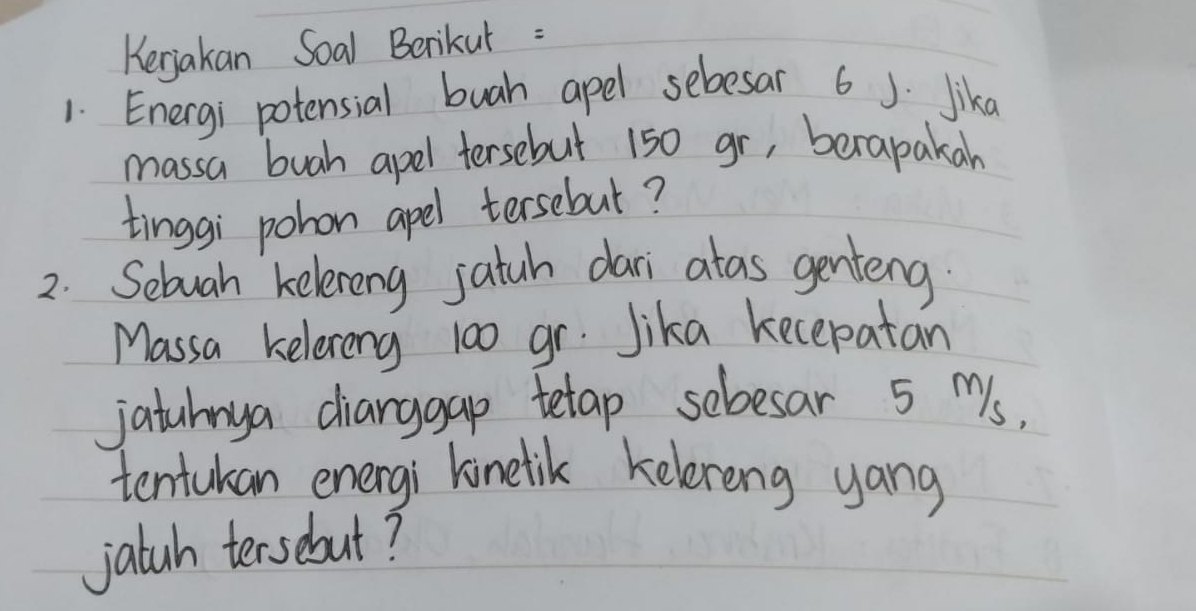 Kerjakan Soal Berikut =
1. Energi potensial buah apel sebesar 6 J. Jika
massa buah apel tersebut 150 gr, berapakah
tinggi pohon apel tersebut?
2. Sebuah kelereng jatuh dari atas genteng.
Massa kelereng 100 gr. Jika kecepatan
jatuhnya dianggap tetap sebesar 5 m/s,
tentukan energi kinetik kelereng yang
jatuh tersebut?